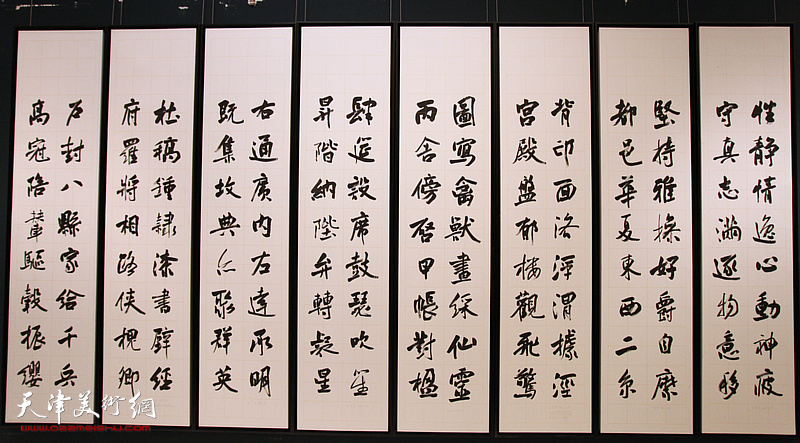 性静情逸心動神疲
守真志滿逐物意移
堅持雅操好爵自縻
都邑華夏東西二京
背邙面洛浮渭據涇
宮殿盤郁樓觀飛驚
圖寫禽獸畫綵仙靈
丙舍傍啓甲帳對楹
肆筵設席鼓瑟吹笙
昇階納陛弁轉疑星
右通廣內左達承明
既集墳典亦聚群英
杜稿鍾隸漆書壁經
府羅將相路俠槐卿
戶封八縣家給千兵
高冠陪輦驅轂振纓
天津美術網
www.088meishu.com